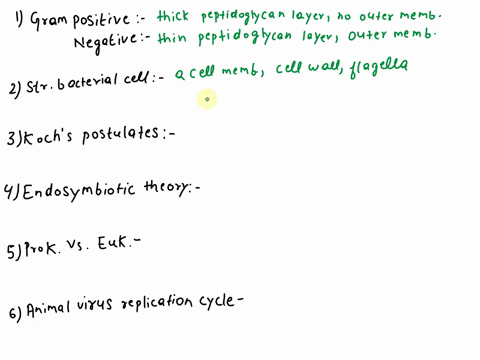 1) Gram positive :- thick peptidoglycan layer, no outer memb.
Negative:- thin peptidoglycan layer, outer memb.
2) Str. bacterial cell:- a cell memb, cell wall, flagella
3) Koch's postulates:-
4) Endosymbiotic theory:-
5) Prok. Vs. Euk.-
6) Animal virus replication cycle-